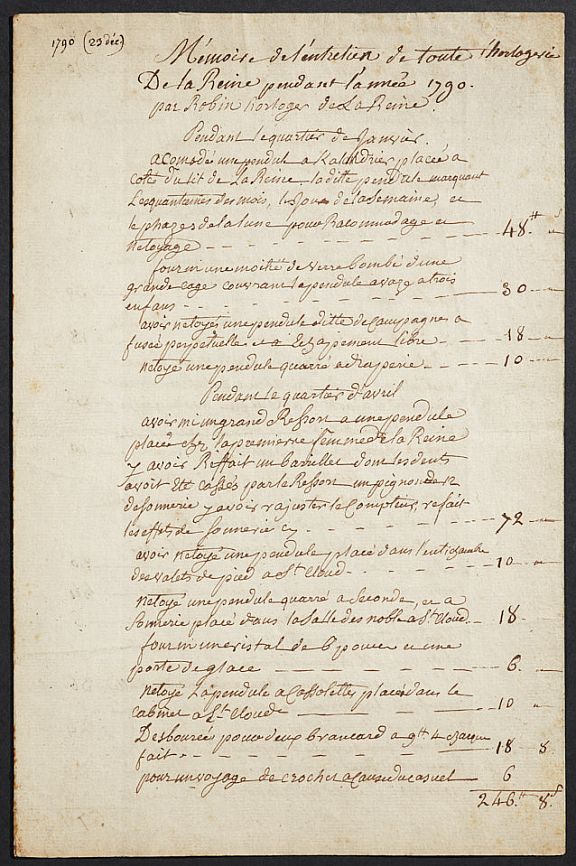 1790 (23 déc)
Mémoire de l'entretien de toute l'horlogerie
De la Reine pendant l'année 1790.
par Robin horloger de La Reine.
Pendant le quartier de Janvier.
acomodé une pendul a Kalandrier placée a
coté du lit de La Reine laditte pendule marquant
Les quantiemes des mois, les Jour de la Semaine, et
le phazes de la lune pour Racommodage et
netoyage 48.tt s
fourni une moitié de verre bombé d'une
grande cage couvrant le pendule a vaze a trois
enfans 30
avoir netoyés une pendule ditte de Campagne a
fusée perpetuelle et a Echapement libre 18
netoyé une pendule quarré a draperie 10
Pendant le quartier d'avril
avoir mi un grand Resson a une pendule
placée chez la premierre femme de la Reine
y avoir Reffait un barrillet dont les dents
avoit Eté cassés par le Resson un pignon de
de sonnerie y avoir rajuster le Compteur, refait
les effets de sonnerie 72
avoir netoyé une pendule placé dans l'entichambre
des valets de pied a St Cloud 10
netoyé une pendule quarré a Seconde, et a
Sonnerie placé dans la Salle des noble a St Cloud 18
fourni un cristal de 6 pouce et une
porte de glace 6
netoyé La pendule a Cassolettes placée dans le
cabinet a St Cloude 10
Desbourée pour deux brancard a 9tt 4 chaque
fait 18 8
pour un voyage de crochet a Cause du casuel 6
246.tt 8.s